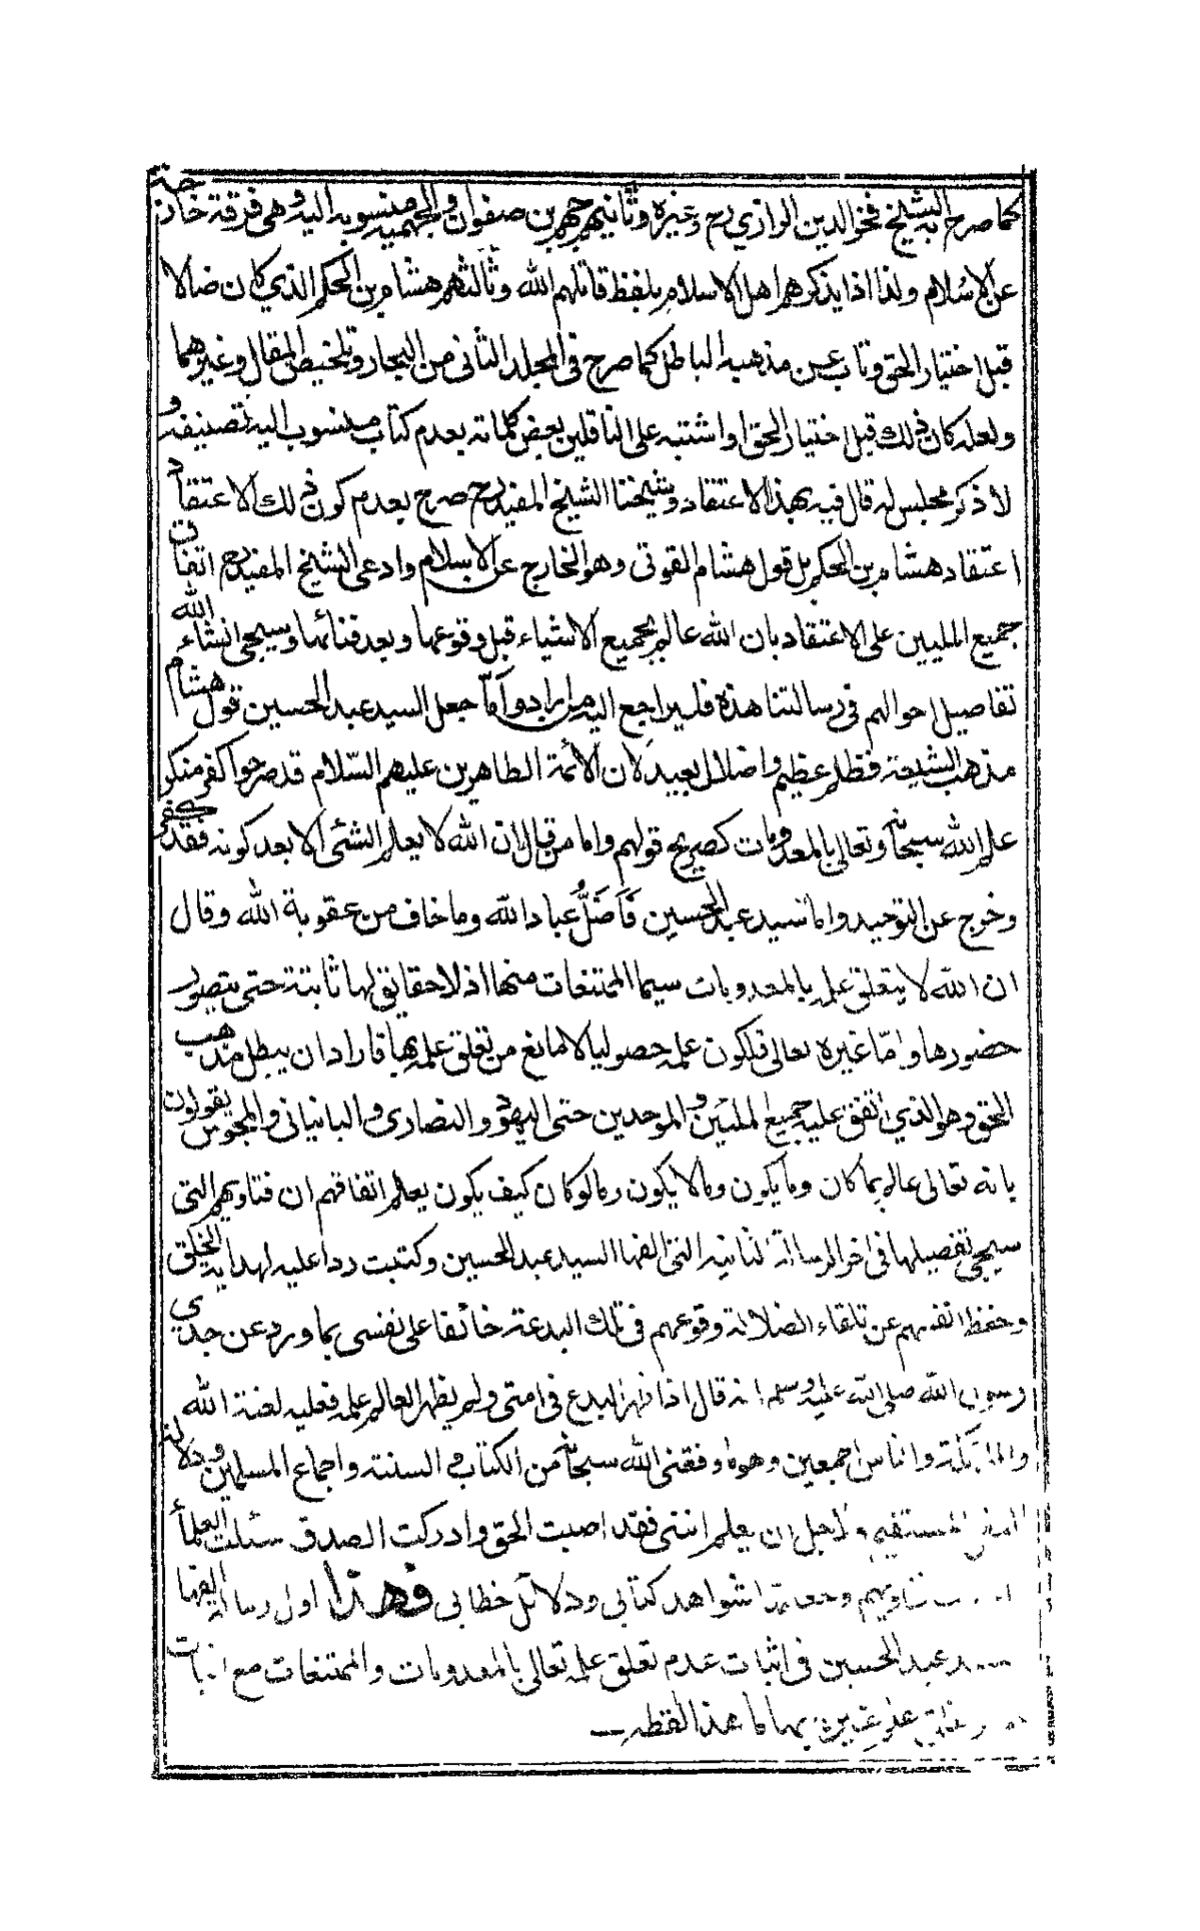 كما صرح به الشيخ فخر الدين الرازي رح وغيره وثانيهم جهم بن صفوان والجهمية منسوبة اليه وهى فرقة خارجة
عن الاسلام ولذا اذا يذكرهم اهل الاسلام بلفظ قاتلهم الله وثالثهم هشام بن الحكم الذي كان ضالا
قبل اختيار الحق وتاب عن مذهبه الباطل كما صرح فى المجلد الثانى من البحار وتلخيص المقال وغيرهما
ولعله كان ذلك قبل اختيار الحق او اشتبه على الناقلين بعض كلماته بعدم كتاب منسوب اليه تصنيفه و
لا ذكر مجلس له قال فيه بهذا الاعتقاد وشيخنا الشيخ المفيد رح صرح بعدم كون ذلك الاعتقاد
اعتقاد هشام بن الحكم بل قول هشام القوتى وهو الخارج عن الاسلام وادعى الشيخ المفيد رح اتفاق
جميع المليين على الاعتقاد بان الله عالم بجميع الاشياء قبل وقوعها وبعد فنائها وسيجئ انشاء الله
تفاصيل احوالهم فى رسالتنا هذه فليراجع اليه من اراد واما جعل السيد عبد الحسين قول هشام
مذهب الشيعة فظلم عظيم واضلال بعيد لان الائمة الطاهرين عليهم السلام قد صرحوا كفر منكر
علم الله سبحانه وتعالى بالمعدومات كصريح قولهم واما من قال ان الله لا يعلم الشئ الا بعد كونه فقد كفر
وخرج عن التوحيد واما سيد عبد الحسين فَاَضَلَّ عباد الله وما خاف من عقوبة الله وقال
ان الله لا يتعلق علمه بالمعدومات سيما الممتنعات منها اذ لا حقايق لها ثابتة حتى يتصور
حضورها واما غيره تعالى فلكون علمه حصوليا لا مانع من تعلق علمه بها فاراد ان يبطل مذهب
الحق وهو الذي اتفق عليه جميع المليين والموحدين حتى اليهود والنصارى والبانيانى والمجوس يقولون
بانه تعالى عالم بما كان وما يكون وما لا يكون وما لو كان كيف يكون يعلم اتفاقهم ان فتاويهم التى
سيجئ تفصيلها فى اخر الرسالة الثانية التى الفها السيد عبد الحسين وكتبت ردا عليه لهداية الخلق
وحفظ انفسهم عن تلقاء الضلالة وقوعهم فى تلك البدعة خائفا على نفسى بما ورد عن جدي
رسول الله صلى الله عليه وسلم انه قال اذا ظهر البدع فى امتى ولم يظهر العالم علمه فعليه لعنة الله
والملائكة والناس اجمعين وهو ما وفقنى الله سبحانه من الكتاب والسنة واجماع المسلمين ودلالة
المستقيم ولاجل ان يعلم اننى فقد اصبت الحق وادركت الصدق سئلت العلماء
فتاويهم وجعلتها شواهد كتابى ودلائل خطابى فهذا اول رسالة الفها
عبد الحسين فى اثبات عدم تعلق علمه تعالى بالمعدومات والممتنعات مع اثبات
علم غيره بها كما هذا لفظه